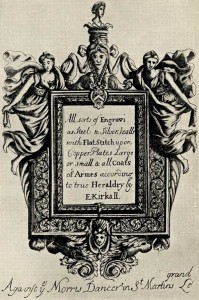 All sorts of Engravi
as Steel & Silver, Sealls
with Flat Stitch upon
Copper Plates Large
or small & all Coats
of Armes according
to true Heraldry by
E. Kirkall.
grand
Against ye Morris Dancer in St Martins Le